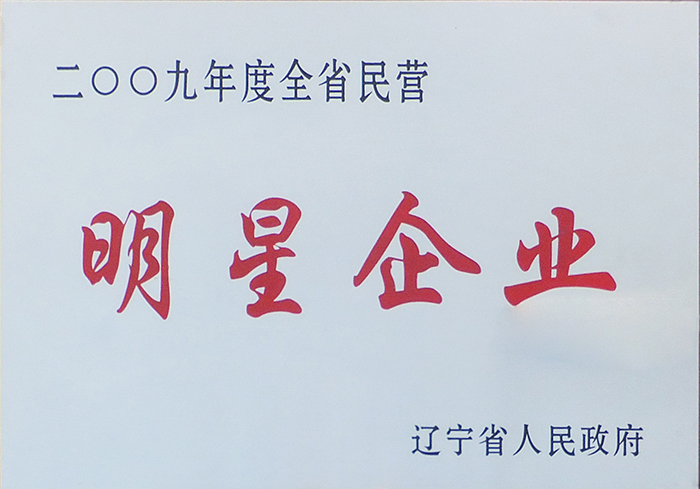 二〇〇九年度全省民营
明星企业
辽宁省人民政府